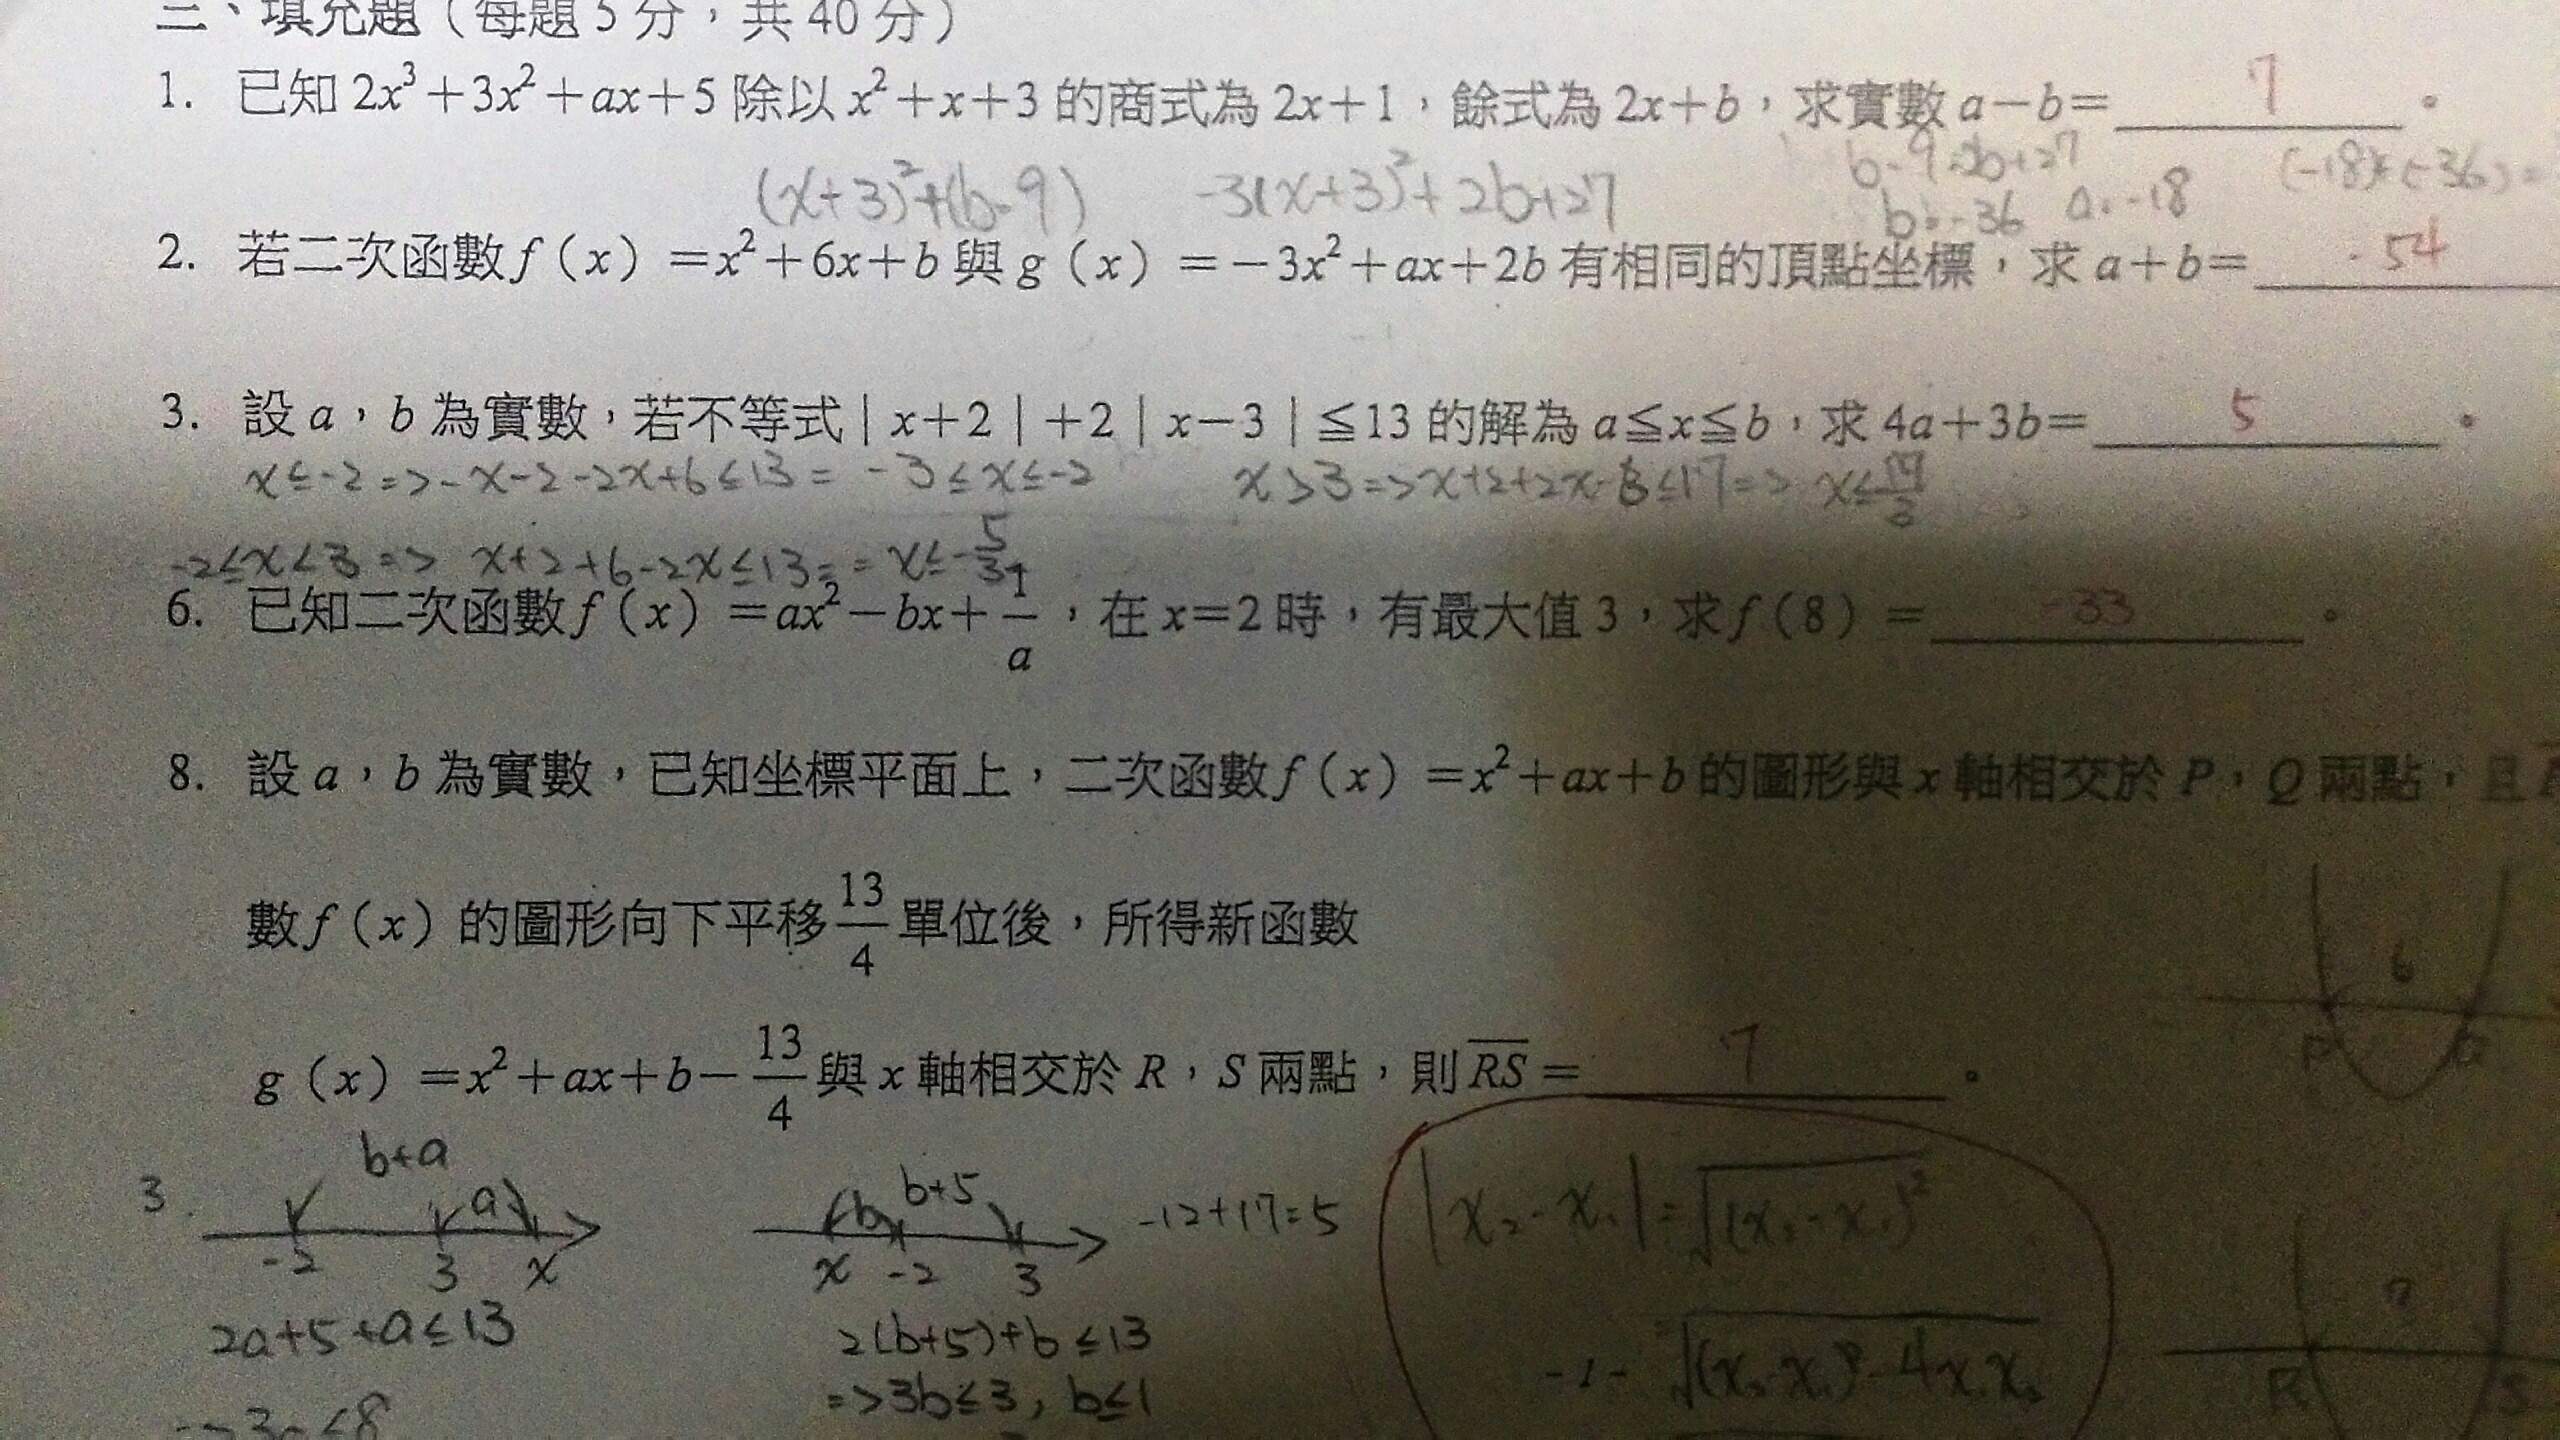 二、填充題（每題5分，共40分）
1. 已知2x³+3x²+ax+5除以x²+x+3的商式為2x+1，餘式為2x+b，求實數a-b= 7 。
(x+3)²+(b-9) -3(x+3)²+2b+27
b-9=2b+27
b=-36 a=-18 (-18)+(-36)=
2. 若二次函數f(x)=x²+6x+b與g(x)=-3x²+ax+2b有相同的頂點坐標，求a+b= -54
3. 設a，b為實數，若不等式|x+2|+2|x-3|≦13的解為a≦x≦b，求4a+3b= 5 。
x≤-2=>-x-2-2x+6≤13= -3≤x≤-2 x>3=>x+2+2x-6≤17=> x≤17/3
-2≤x<3=> x+2+6-2x≤13= = x≤-5/3
6. 已知二次函數f(x)=ax²-bx+1/a，在x=2時，有最大值3，求f(8)= -33 。
8. 設a，b為實數，已知坐標平面上，二次函數f(x)=x²+ax+b的圖形與x軸相交於P，Q兩點，且
數f(x)的圖形向下平移13/4單位後，所得新函數
6
P Q
g(x)=x²+ax+b-13/4與x軸相交於R，S兩點，則RS= 7 。
3. b+a
a
-2 3 x
b b+5
x -2 3
-12+17=5
|x₂-x₁|=√(x₂-x₁)²
2a+5+a≤13
2(b+5)+b≤13
=>3b≤3, b≤1
-1-
R S